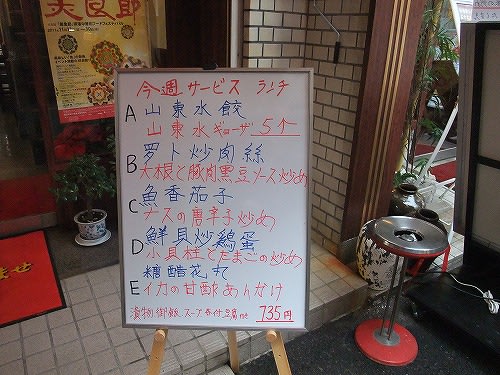 美食節
今週サービス ランチ
A 山東水餃
山東水ギョーザ 5ケ
B 罗卜炒肉絲
大根と豚肉黒豆ソース炒め
C 魚香茄子
ナスの唐辛子炒め
D 鮮貝炒鶏蛋
小貝柱とたまごの炒め
糖醋花丸
E イカの甘酢あんかけ
漬物 御飯 スープ 杏仁豆腐 net 735円
ませ